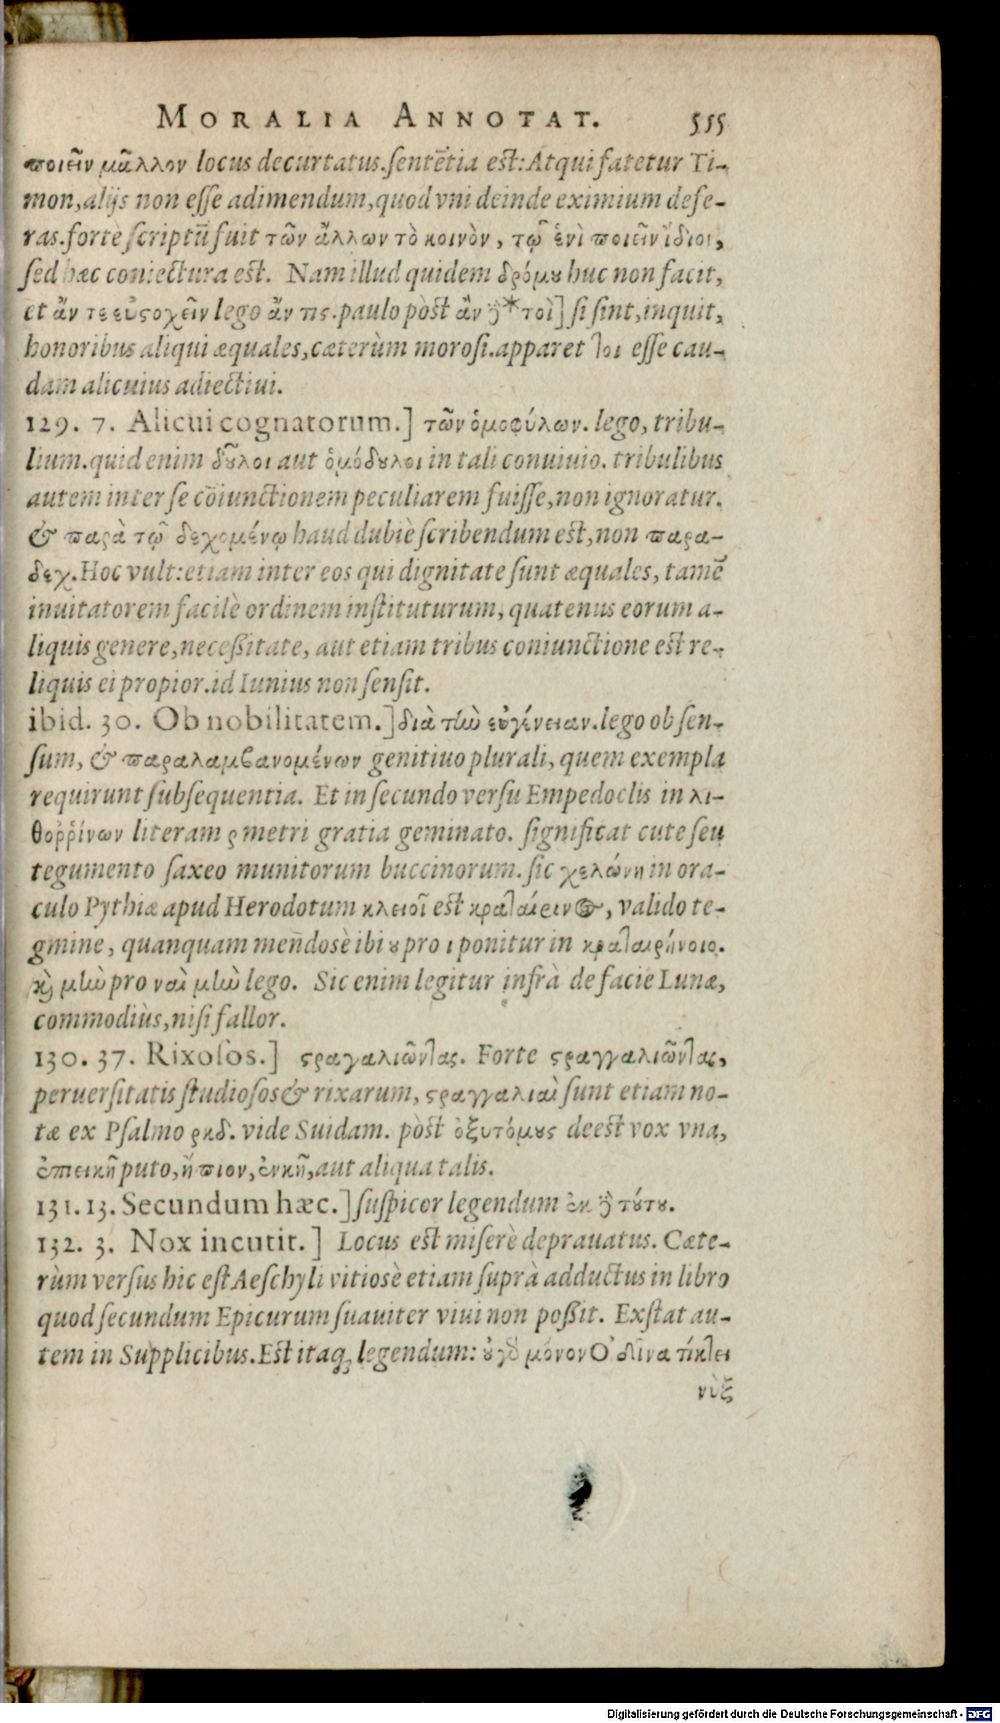 MORALIA ANNOTAT. 555
ποιεῖν μᾶλλον locus decurtatus. sentẽtia est: Atqui fatetur Ti-
mon, alijs non esse adimendum, quod vni deinde eximium defe-
ras. fortè scriptũ fuit τῶν ἄλλων τὸ κοινὸν, τῷ ἑνὶ ποιεῖν ἴδιοι,
sed hæc coniectura est. Nam illud quidem δρόμου huc non facit,
et ἄν τε εὐστοχεῖν lego ἄν τις. paulo pòst ἂν ᾖ * τοὶ] si sint, inquit,
honoribus aliqui æquales, cæterùm morosi. apparet τοι esse cau-
dam alicuius adiectiui.
129. 7. Alicui cognatorum.] τῶν ὁμοφύλων. lego, tribu-
lium. quid enim δοῦλοι aut ὁμόδουλοι in tali conuiuio. tribulibus
autem inter se cõiunctionem peculiarem fuisse, non ignoratur.
& παρὰ τῷ δεχομένῳ haud dubiè scribendum est, non παρα-
δεχ. Hoc vult: etiam inter eos qui dignitate sunt æquales, tamẽ
inuitatorem facilè ordinem instituturum, quatenus eorum a-
liquis genere, necessitate, aut etiam tribus coniunctione est re-
liquis ei propior. id Iunius non sensit.
ibid. 30. Ob nobilitatem.] διὰ τὴν εὐγένειαν. lego ob sen-
sum, & παραλαμβανομένων genitiuo plurali, quem exempla
requirunt subsequentia. Et in secundo versu Empedoclis in λι-
θοῤῥίνων literam ρ metri gratia geminato. significat cute seu
tegumento saxeo munitorum buccinorum. sic χελώνη in ora-
culo Pythiæ apud Herodotum κλειοῖ est κραταίρινος, valido te-
gmine, quanquam mendosè ibi ου pro ι ponitur in κραταιρήνοιο.
καὶ μὴν pro ναὶ μὴν lego. Sic enim legitur infrà de facie Lunæ,
commodiùs, nisi fallor.
130. 37. Rixosos.] στραγαλιῶντας. Forte στραγγαλιῶντας,
peruersitatis studiosos & rixarum, στραγγαλιαὶ sunt etiam no-
tæ ex Psalmo ρκδ. vide Suidam. pòst ὀξυτόμους deest vox vna,
ἐπιεικῆ puto, ἤπιον, ἐνκῆ, aut aliqua talis.
131. 13. Secundum hæc.] suspicor legendum ἐκ δὲ τούτου.
132. 3. Nox incutit.] Locus est miserè deprauatus. Cæte-
rùm versus hic est Aeschyli vitiosè etiam suprà adductus in libro
quod secundum Epicurum suauiter viui non possit. Exstat au-
tem in Supplicibus. Est itaq; legendum: οὐ γὰρ μόνον Ὠδῖνα τίκτει
νὺξ
Digitalisierung gefördert durch die Deutsche Forschungsgemeinschaft - DFG